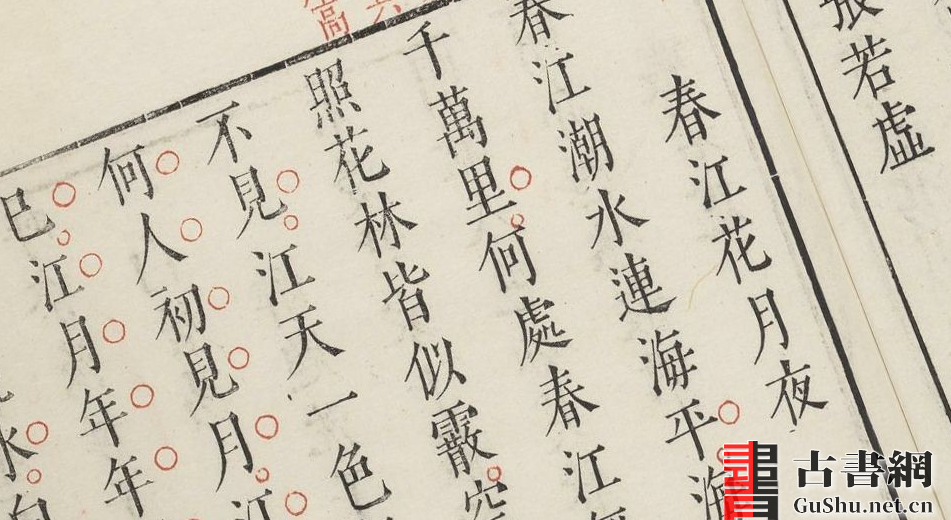 張若虛
春江花月夜
春江潮水連海平海
千萬里何處春江
照花林皆似霰空
不見江天一色
何人初見月江
已江月年年
水
高
古書網
GuShu.net.cn